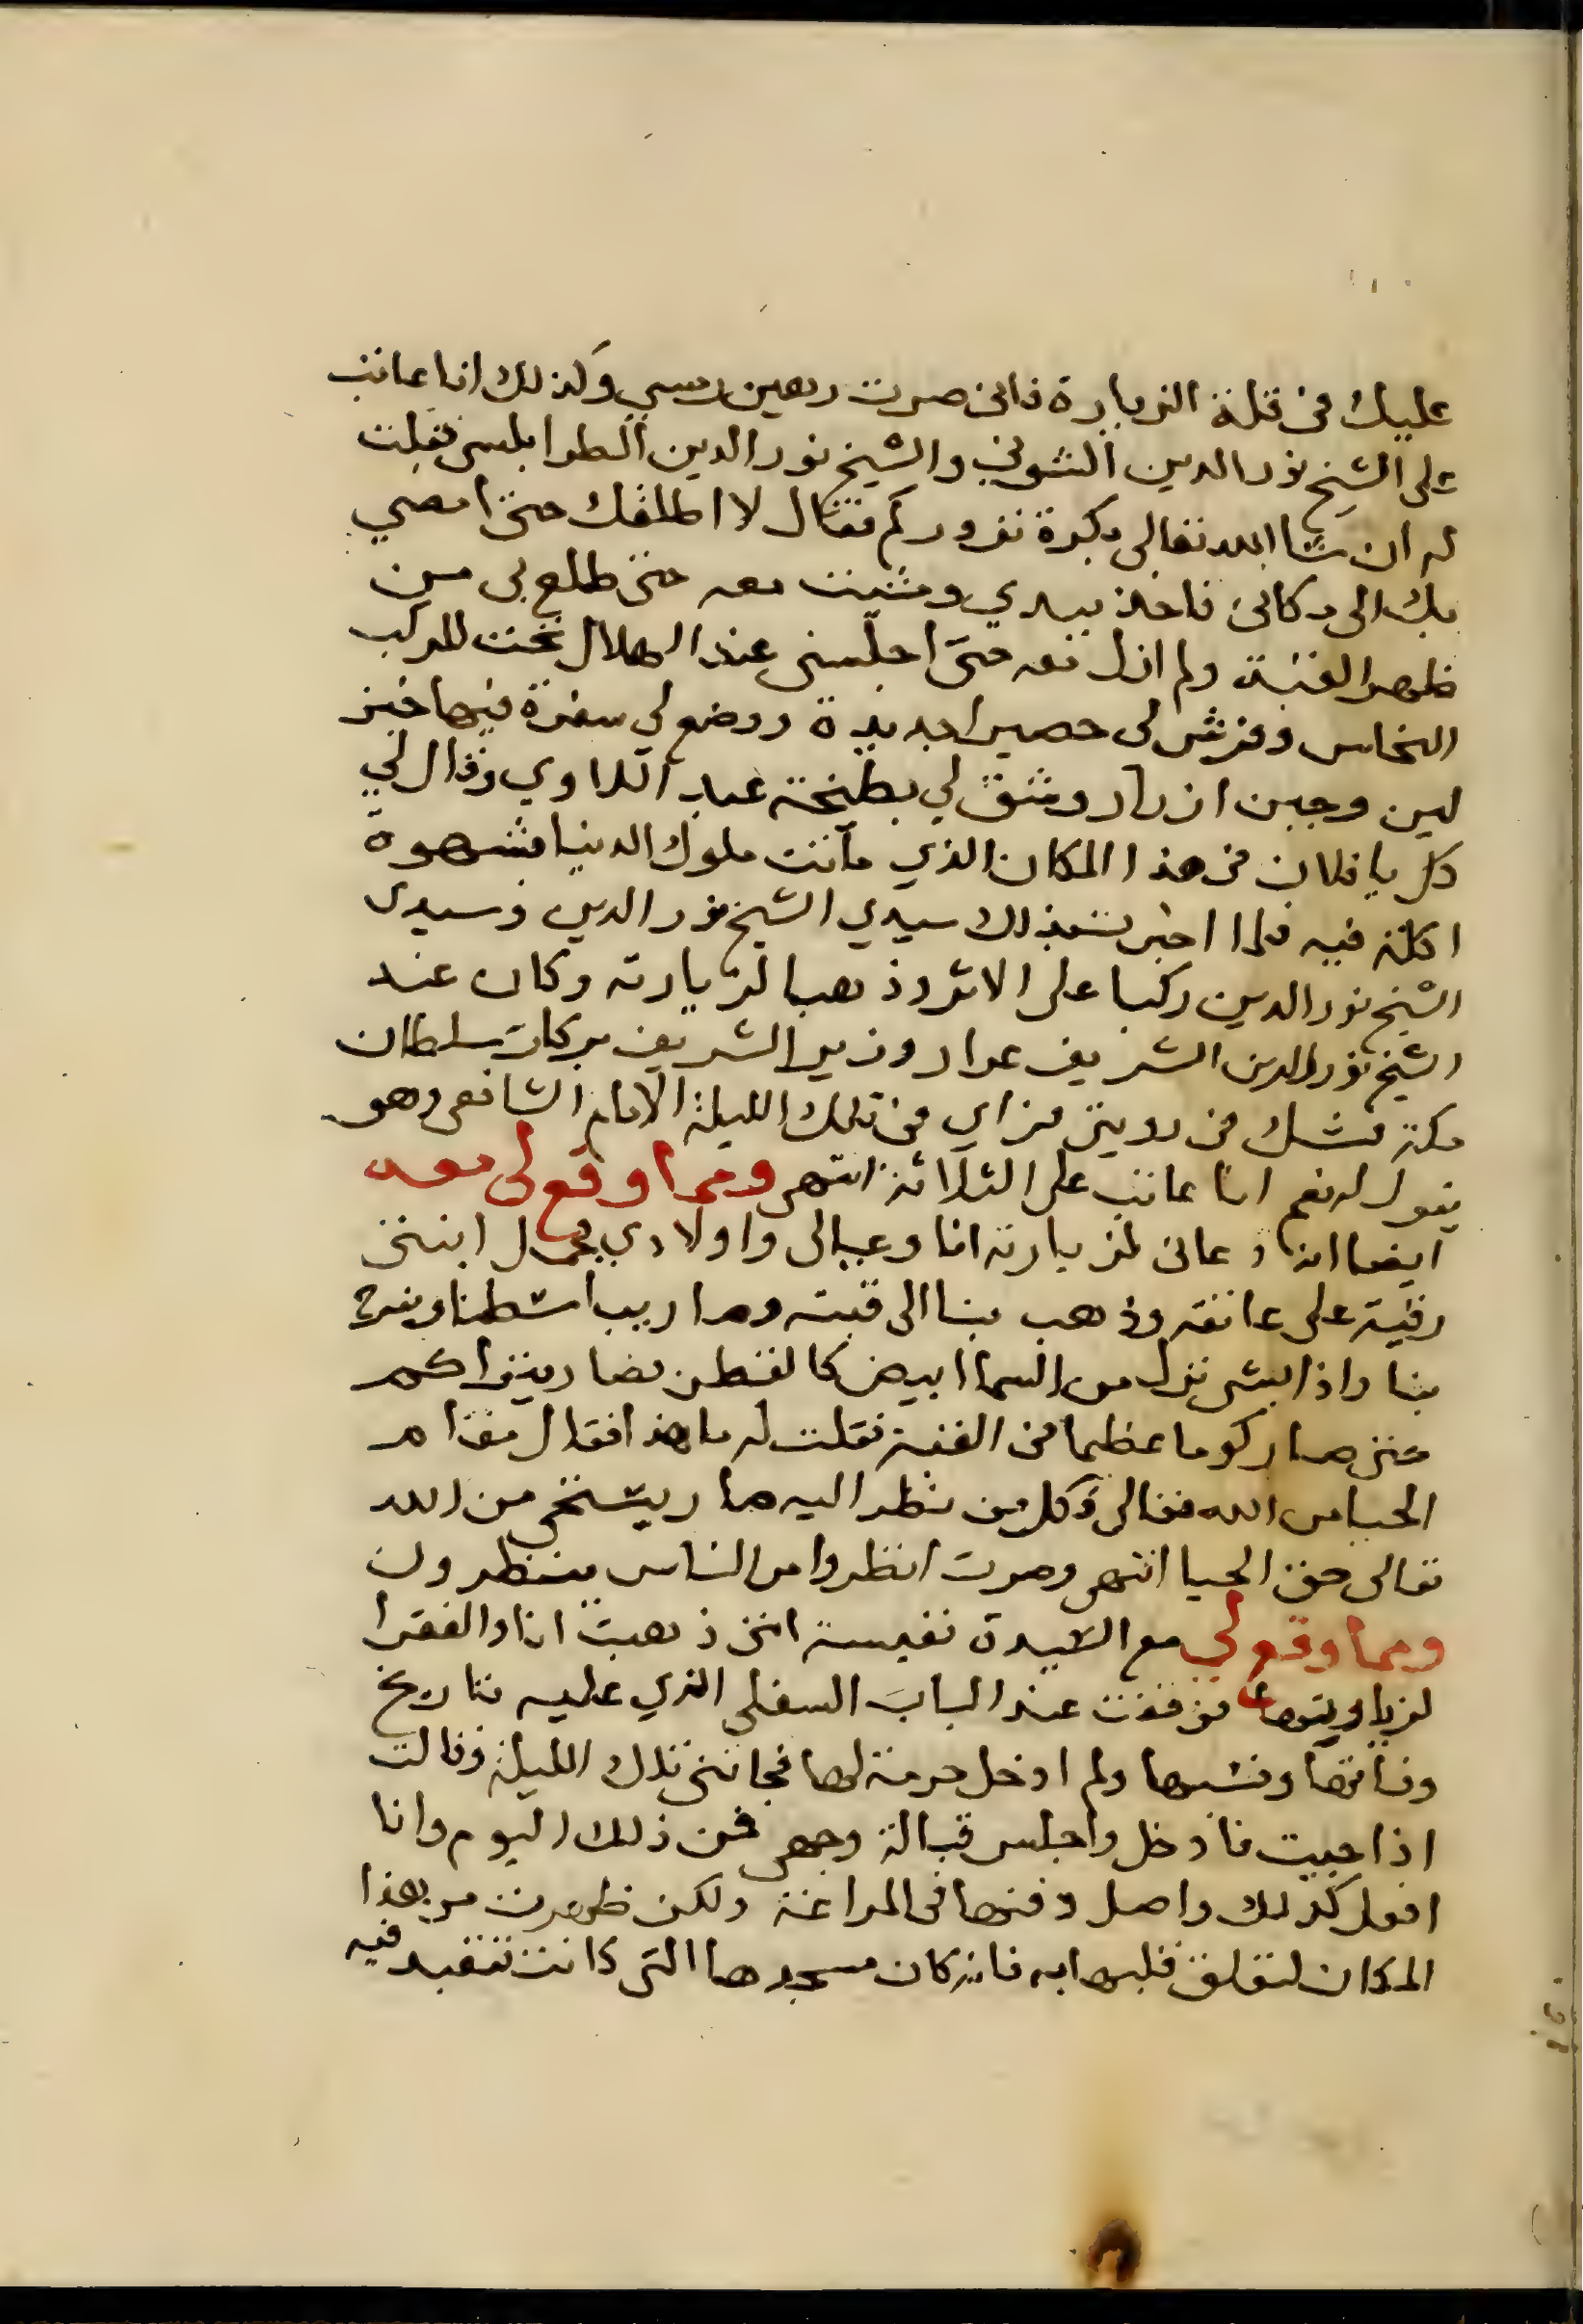 عليك في قلة الزيارة فاني صرت رهين رمسي وكذلك انا عاتب
على الشيخ نور الدين الشوني والشيخ نور الدين الطرابلسي فقلت
له ان شا الله تعالى بكرة نزوركم فقال لا اطلقك حتى امضي
بك الى مكاني فاخذ بيدي ومشيت معه حتى طلع بي من
ظهر القبة ولم ازل معه حتى اجلسني عند الهلال تحت المركب
النحاس وفرش لي حصيرا جديدة ووضع لي سفرة فيها خبز
لين وجبن ازرار وشق لي بطيخة عبد اللاوي وقال لي
كل يا فلان في هذا المكان الذي ماتت ملوك الدنيا بشهوة
اكلة فيه فلما اخبرت بذلك سيدي الشيخ نور الدين وسيدي
الشيخ نور الدين ركبا على الاثر وذهبا لزيارته وكان عند
الشيخ نور الدين الشريف عرار وزير الشريف بركات سلطان
مكة فشك في رويتي فراي في تلك الليلة الامام الشافعي وهو
يقول له نعم انا عاتب على الثلاثة انتهى ومما وقع لي معه
ايضا انه دعاني لزيارته انا وعيالي واولادي فحمل ابنتي
رقية على عاتقه وذهب بنا الى قبته وصار يباسطنا ويفرح
بنا واذا بشي نزل من السما ابيض كالقطن فصار يتراكم
حتى صار كوما عظيما في القبة فقلت له ما هذا فقال مقام
الحيا من الله تعالى وكل من نظر اليه صار يستحي من الله
تعالى حق الحيا انتهى وصرت انظر والناس ينظرون
ومما وقع لي مع السيدة نفيسة انني ذهبت انا والفقرا
لزيارتها فوقفت عند الباب السفلي الذي عليه تاريخ
وفاتها ونسبها ولم ادخل حرمة لها فجاتني تلك الليلة وقالت
اذا جيت فادخل واجلس قبالة وجهي فمن ذلك اليوم وانا
افعل كذلك واصل دفنها في المراغة ولكن ظهرت من هذا
المكان لتعلق قلبها به فانه كان مسجدها التي كانت تتعبد فيه